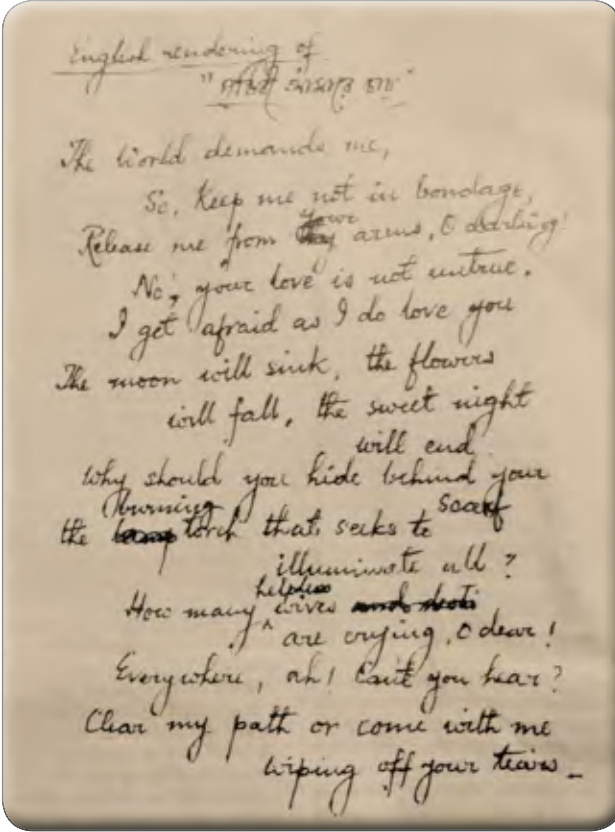 English rendering of
"পৃথিবী আমারে চায়"
The World demands me,
So, Keep me not in bondage,
Release me from your arms, O darling!
No, your love is not untrue.
I get afraid as I do love you
The moon will sink, the flowers
will fall, the sweet night
will end.
Why should you hide behind your
scarf
the burning torch that seeks to
illuminate all?
How many helpless wives
are crying, O dear!
Everywhere, ah! Can't you hear?
Clear my path or come with me
wiping off your tears_